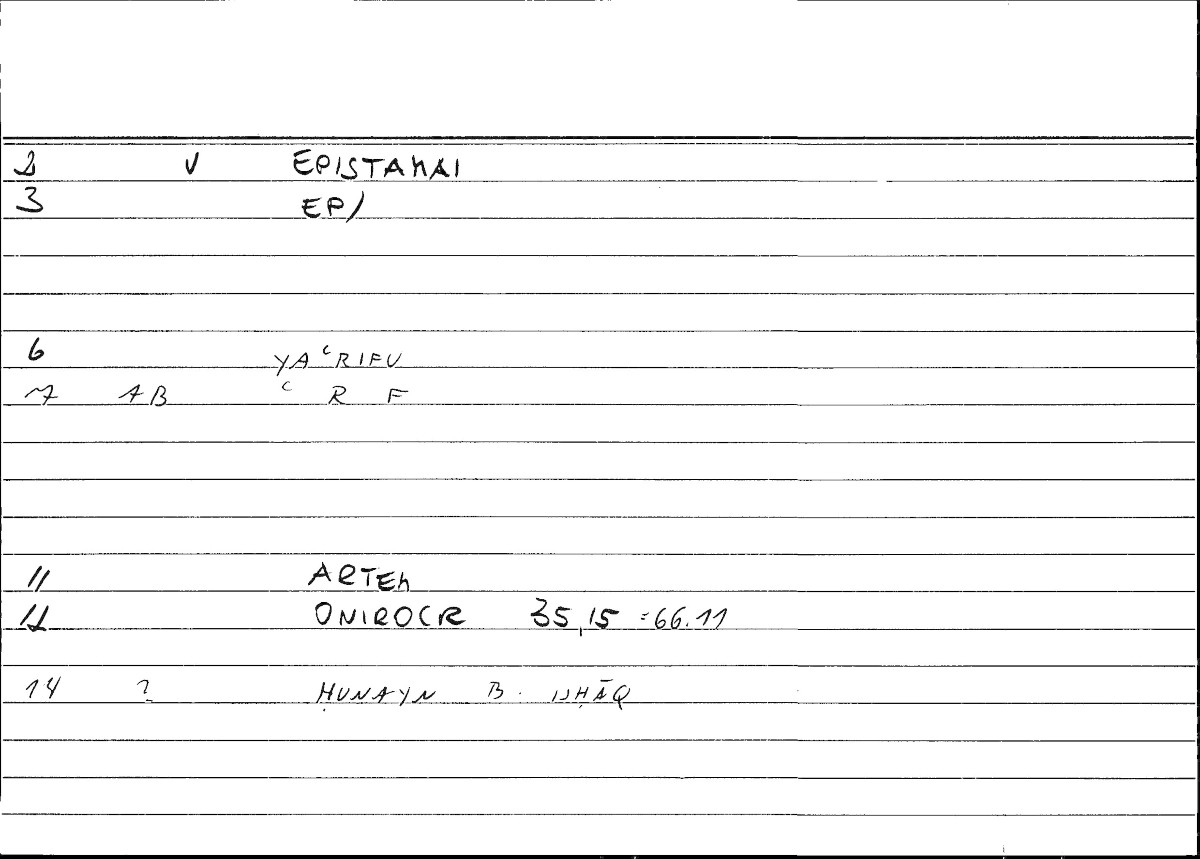 2 V EPISTAMAI
3 EP/
6 YAʿRIFU
7 AB ʿ R F
11 ARTEM
12 ONIROCR 35,15 =66.11
14 2 ḤUNAYN B. ISḤĀQ